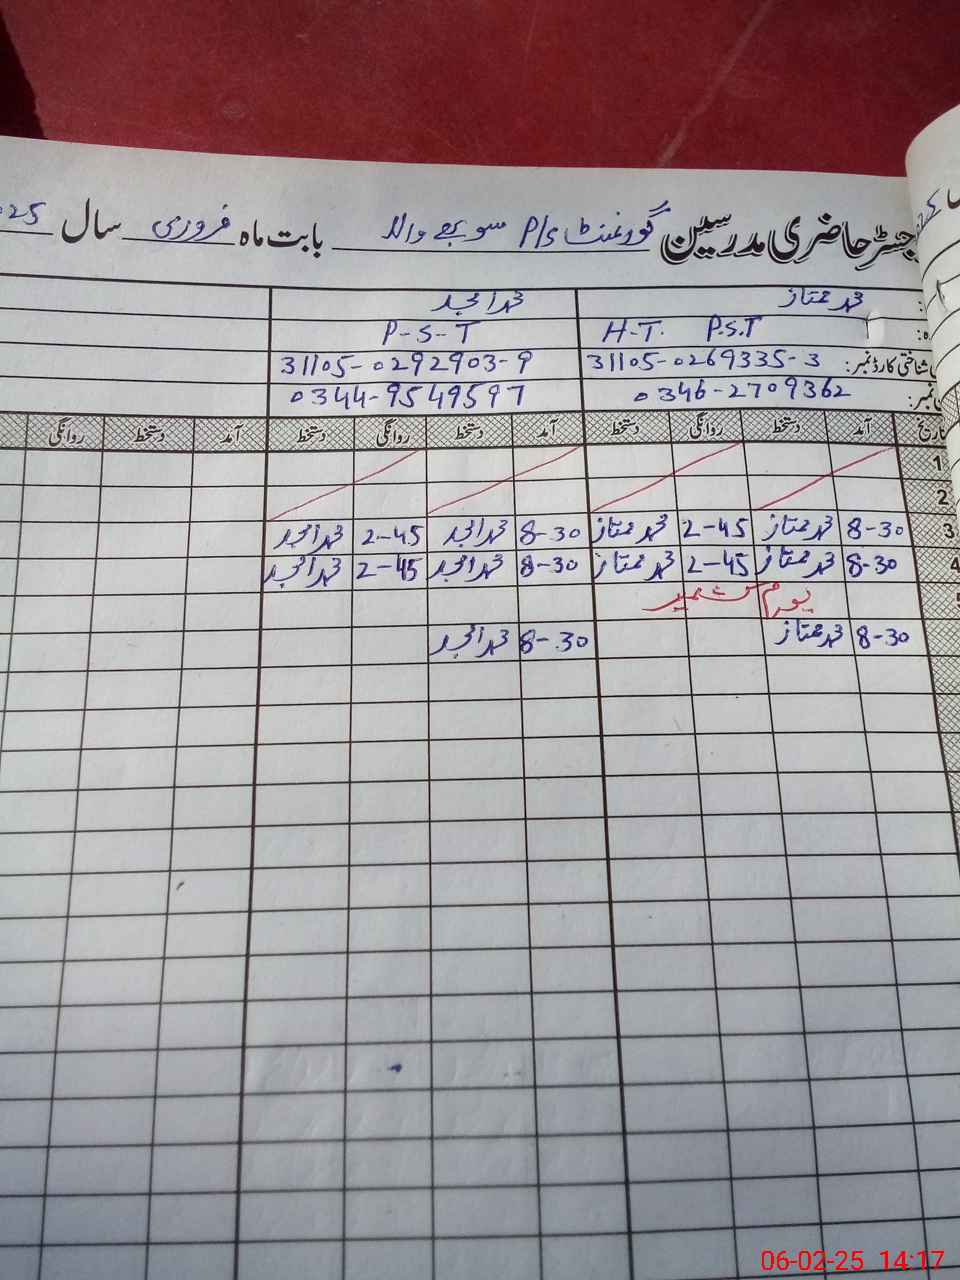 جسٹر حاضری مدرسین گورنمنٹ P/S سوبھے والا بابت ماہ فروری سال 025
محمد ممتاز محمد امجد
H-T. P.S.T P-S-T
شناختی کارڈ نمبر: 31105-0269335-3 31105-0292903-9
نمبر: 0346-2709362 0344-9549597
تاریخ آمد دستخط روانگی دستخط آمد دستخط روانگی دستخط آمد دستخط روانگی
1
2
3 8-30 محمد ممتاز 2-45 محمد ممتاز 8-30 محمد امجد 2-45 محمد امجد
4 8-30 محمد ممتاز 2-45 محمد ممتاز 8-30 محمد امجد 2-45 محمد امجد
یوم کشمیر
8-30 محمد ممتاز 8-30 محمد امجد
06-02-25 14:17